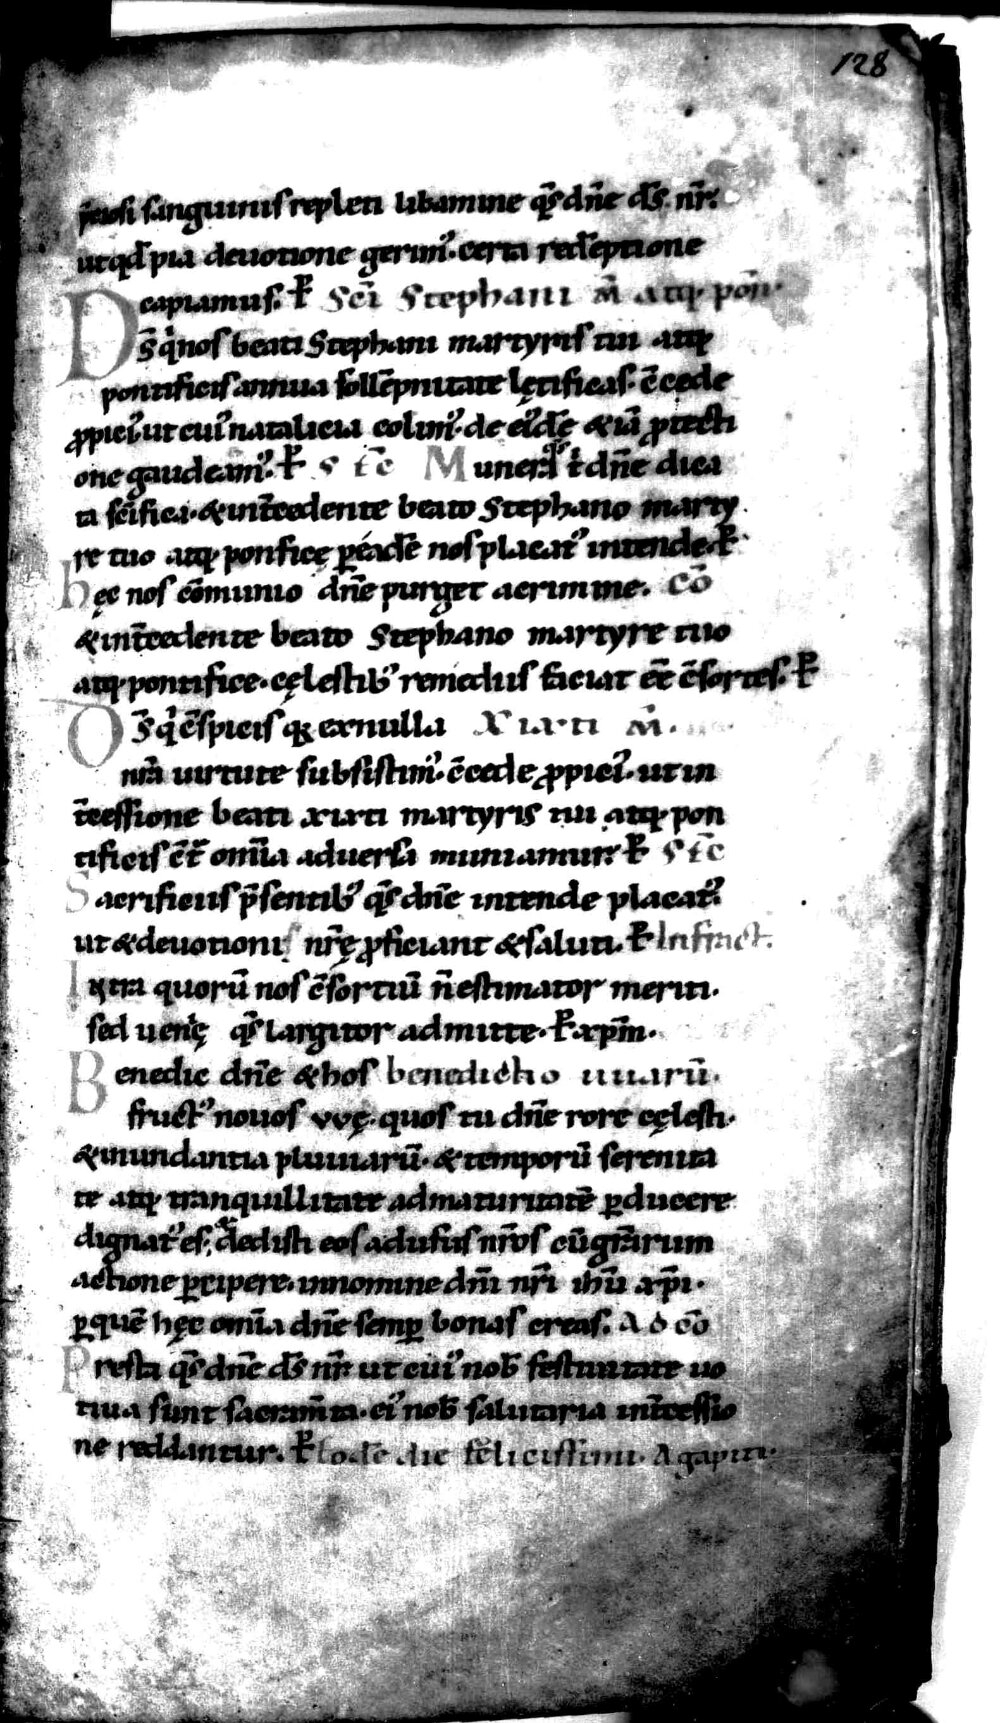 128
p̄ciosi sanguinis repleti libamine qs̄ dn̄e ds̄ nr̄.
ut qd̄ pia deuotione gerim᷒. certa redēptione
capiamus. P̄ Sc̄i Stephani M̄ atq; pon̄.
Ds̄ q̇ nos beati Stephani martyris tui atq;
pontificis annua sollēpnitate lętificas. c̄cede
ꝓpici᷒. ut cui᷒ natalicia colim᷒. de ei᷒dē & iā ꝓtecti
one gaudeam᷒. P̄ STC̄ Munera qs̄ t̄ dn̄e dica
ta sc̄ifica. & int̄cedente beato Stephano marty
re tuo atq; ponficę ꝑ eadē nos placat᷒ intende. P̄
hęc nos cōmunio dn̄e purget acrimine. CŌ
& int̄cedente beato Stephano martyre tuo
atq; pontifice. cęlestib᷒ remediis faciat eē c̄sortes. P̄
Ds̄ q̇ c̄spicis qꝛ exnulla Xixti M̄.
nr̄a uirtute subsistim᷒. c̄cede ꝓpici᷒. ut in
t̄cessione beati xixti martyris tui atq; pon
tificis c̄t̄ om̄ia aduersa muniamur. P̄ STC̄
Sacrificiis p̄sentib᷒ qs̄ dn̄e intende placat᷒.
ut & deuotioni nr̄ę ꝓficiant & saluti. P̄ Infract.
Intra quorū nos c̄sortiū n̄ estimator meriti.
sed uenię qs̄ largitor admitte. P̄ xp̄m.
Benedic dn̄e & hos benedictio uuarū.
fruct᷒ nouos vvę. quos tu dn̄e rore cęlesti.
& inundantia pluuiarū. & temporū serenita
te atq; tranquillitate admaturitatē ꝑducere
dignat᷒ es. & dedisti eos adusus nr̄os cū gr̄arum
actione ꝑcipere. innomine dn̄i nr̄i ih̄u xp̄i.
ꝑ quē hęc om̄ia dn̄e semꝑ bonas creas. AD CŌ
Presta qs̄ dn̄e ds̄ nr̄ ut cui᷒ nob̄ festiuitate uo
tiua sunt sacram̄ta. ei᷒ nob̄ salutaria int̄cessio
ne reddantur. P̄ Eodē die felicissimi. Agapiti.